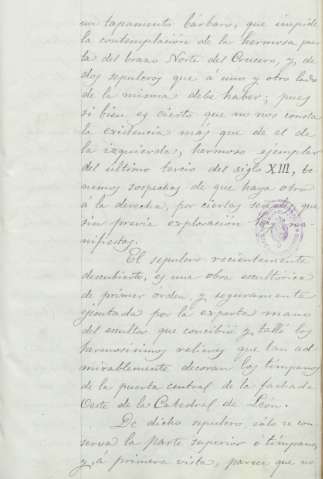 un tapamento bárbaro, que impide
la contemplación de la hermosa puer
ta del brazo Norte del Crucero, y, de
dos sepulcros que á uno y otro lado
de la misma debe haber; pues
si bien es cierto que no nos consta
la existencia más que de el de
la izquierda, hermoso ejemplar
del último tercio del siglo XIII, te
nemos sospechas de que haya otro
á la derecha, por ciertas señales que
sin previa exploración
nifiestas.
El sepulcro recientemente
descubierto, es una obra escultórica
de primer órden y seguramente
ejecutada por la experta mano
del escultor que concibió y talló los
hermosísimos relieves que tan ad
mirablemente decoran los tímpanos
de la puerta central de la fachada
Oeste de la Catedral de León.
De dicho sepulcro, sólo se con
serva la parte superior ó tímpano,
y, á primera vista, parece que no